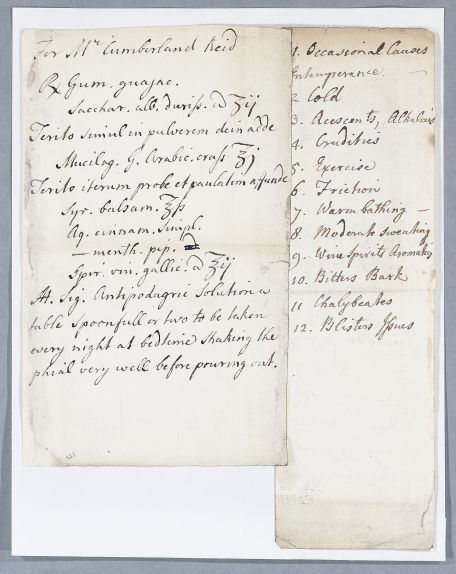 For Mr Cumberland Reid
℞ Gum. guajac.
Sacchar. alb. duriss. a ʒij
Terito simul in pulverem dein adde
Mucilag. G. Arabic. crass ℥j
Terito iterum probe et paulatim affunde
Syr. balsam. ℥ß
Aq. cinnam. simpl.
— menth. pip.
Spir. vin. gallic. a ℥ij
Sig. Antipodagric Solution a
table spoonfull or two to be taken
every night at bedtime shaking the
phial very well before pouring out.
1. Occasional Causes
Intemperance —
2 Cold
3. Acescents, Alkalines
4. Crudities
5. Exercise
6. Friction
7. Warm bathing —
8. Moderate sweating
9. Wine Spirits
10. Bitters Bark
11 Chalybeates
12. Blisters Issues